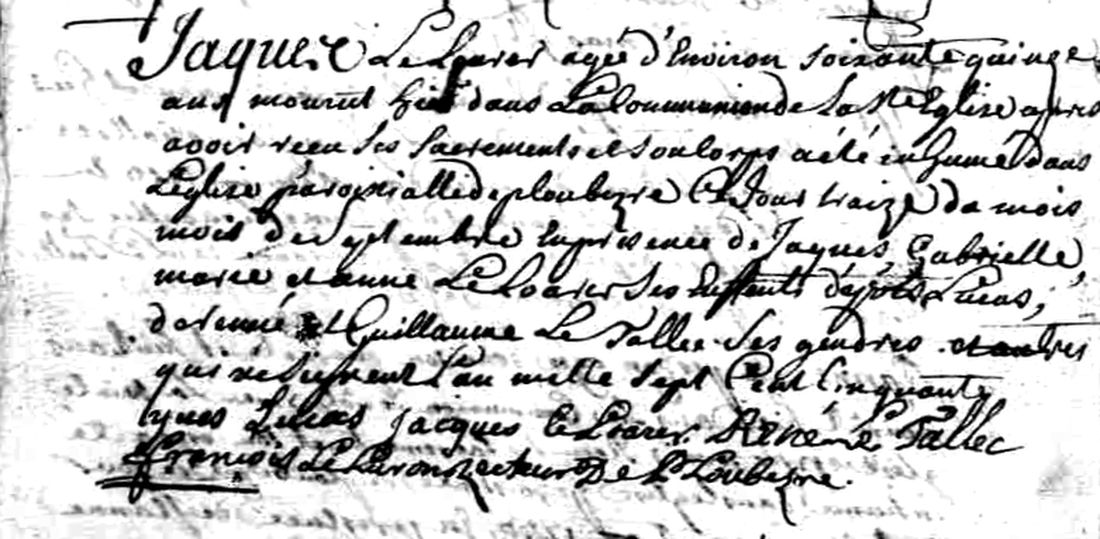 Jaques Le Loarer agée d'Environ soixante quinze
ans mourut hier dans La Communion de La Ste Eglise apres
avoir reçu Ses Sacrements et son Corps a été inhumé dans
L'eglise paroissialle de ploubezre Ce Jour traize du mois
mois de septembre En presence de Jaques, Gabrielle,
marie et anne Le Loarer Ses Enffents Lucas,
de renné et Guillaume Le Tallec Ses gendres et autres
qui ne Signent L'an mille Sept Cent Cinquante
yves Lucas jacques le Loarer René Le Tallec
françois Recteur De Ploubezre.